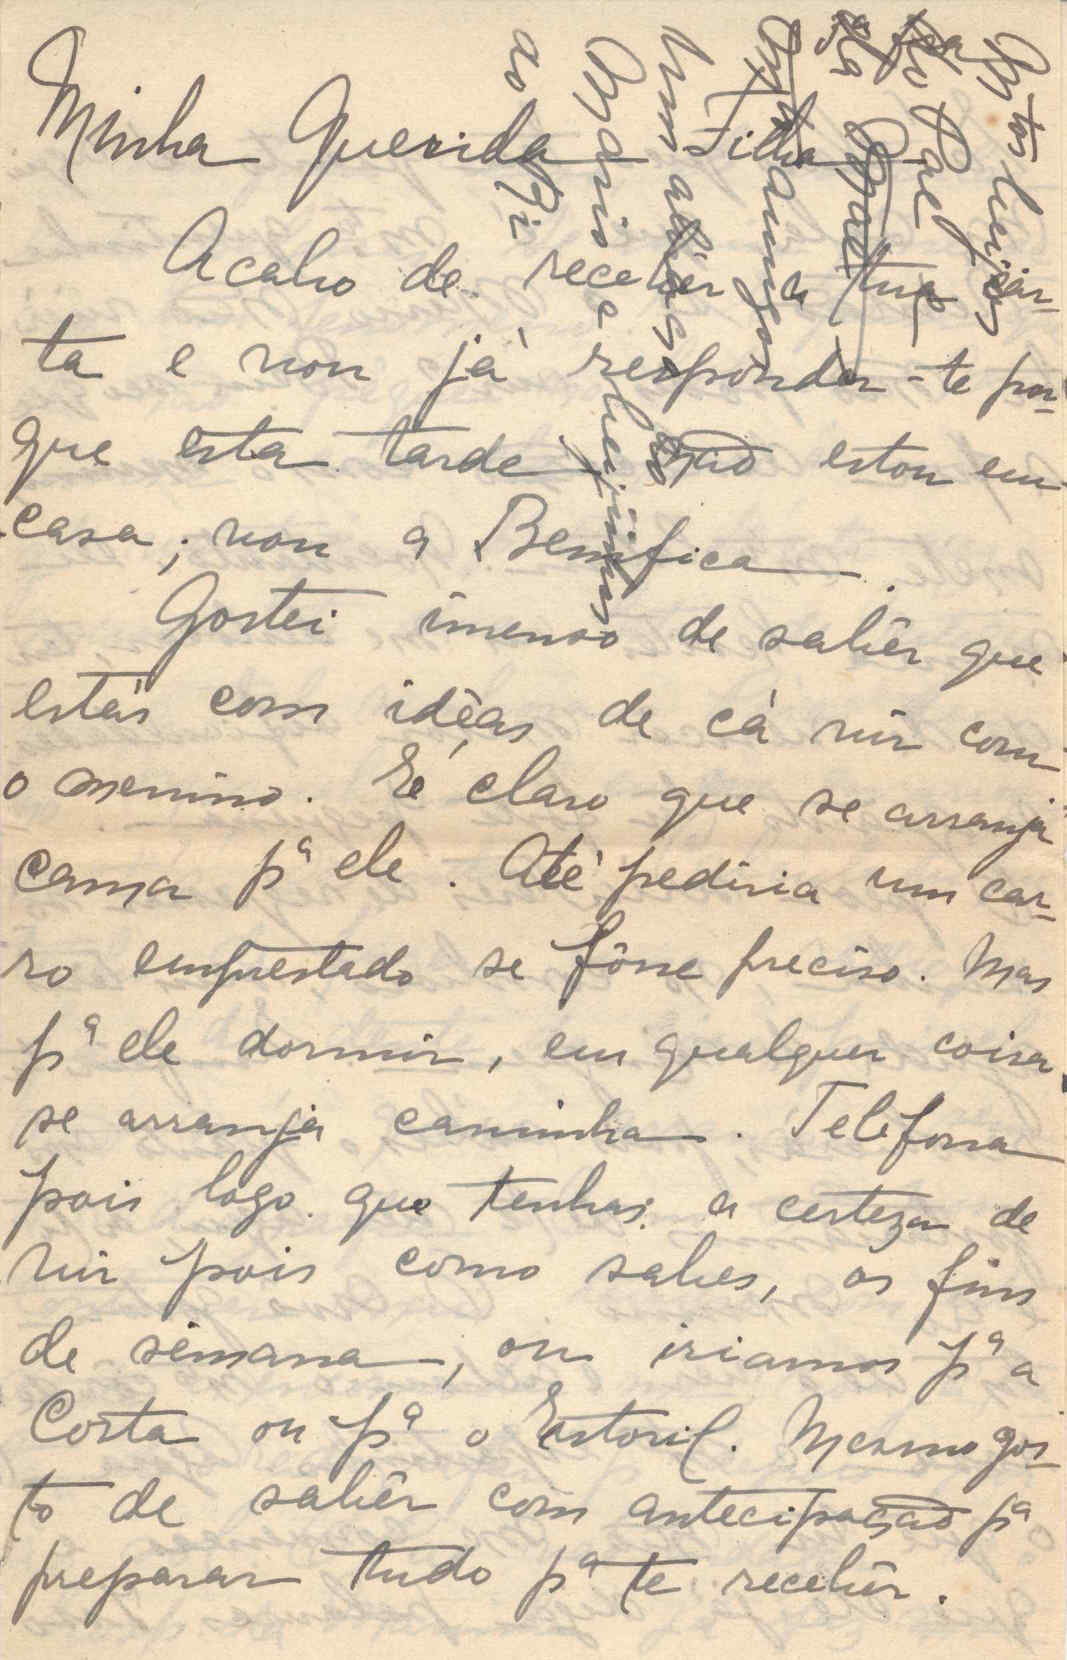 Minha Querida Filha
Acabo de receber a tua car-
ta e vou já responder-te por-
que esta tarde não estou em
casa; vou a Bemfica.
Gostei imenso de sabêr que
estás com idêas de cá vir com
o menino. É claro que se arranja
cama pª ele. Até pediria um car-
ro emprestado se fôsse preciso. Mas
pª ele dormir, em qualquer coisa
se arranja caminha. Telefona
pois logo que tenhas a certeza de
vir pois como sabes, os fins
de semana, ou iriamos pª a
Costa ou pª o Estoril. Mesmo gos-
to de sabêr com antecipação pª
preparar tudo pª te recebêr.
Pae
Um abraço ao
Mario e beijinhos
ao